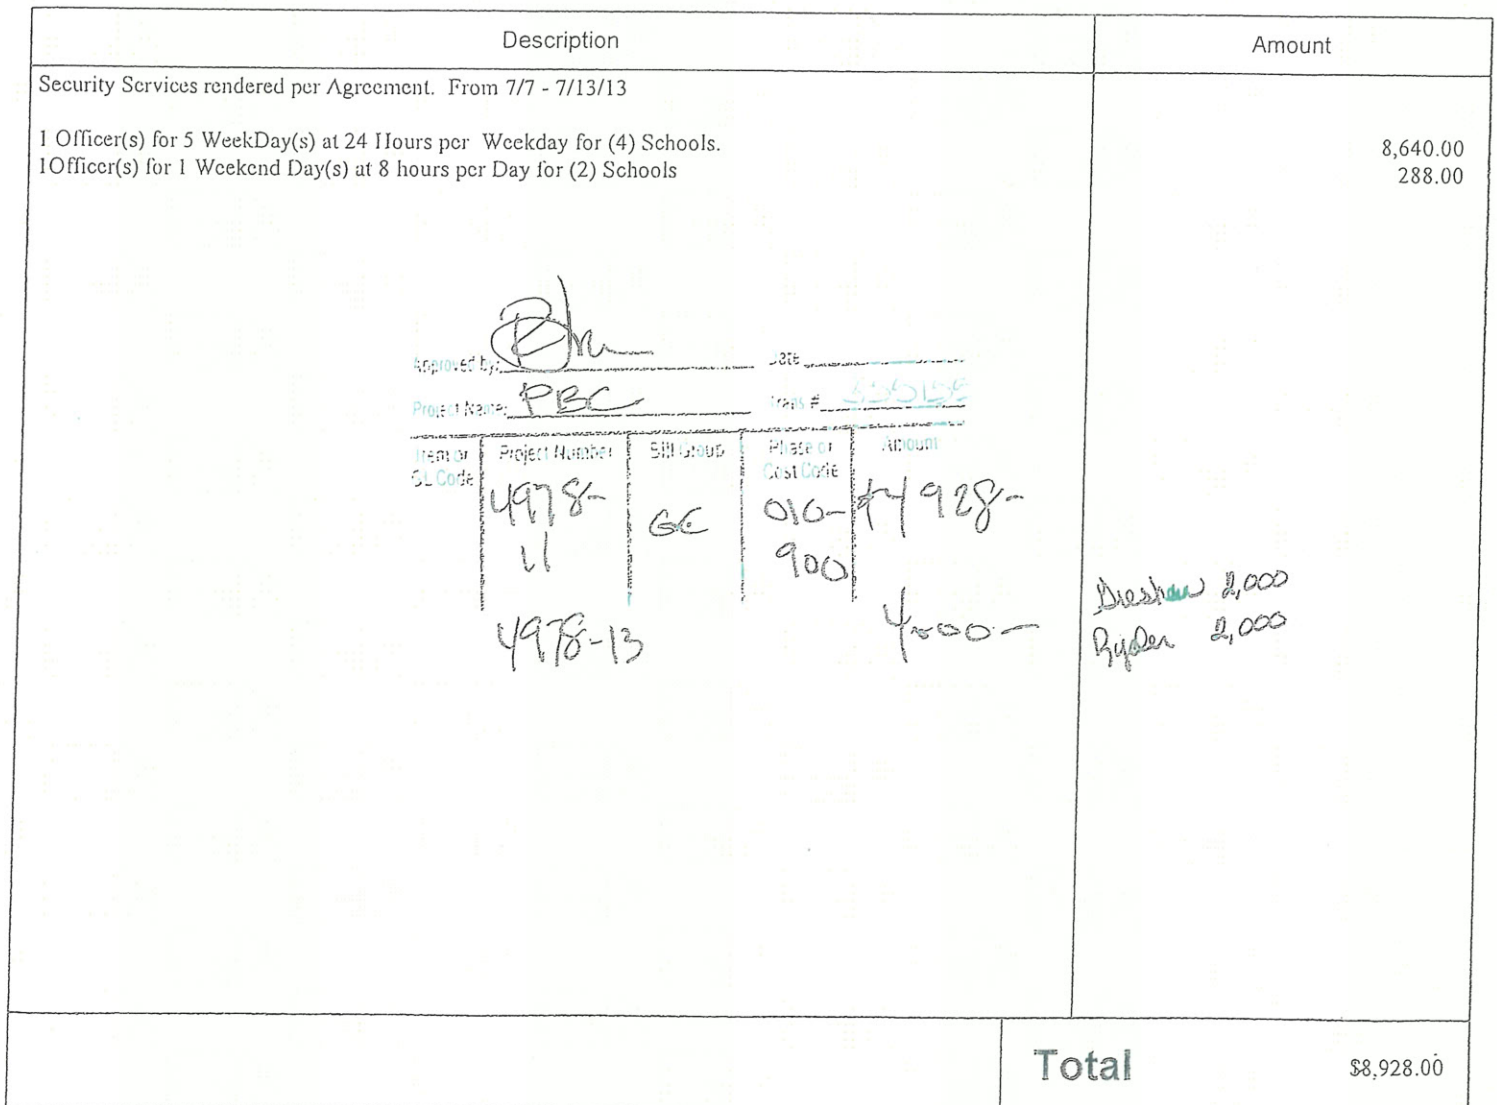 Description Amount
Security Services rendered per Agreement. From 7/7 - 7/13/13
1 Officer(s) for 5 WeekDay(s) at 24 Hours per Weekday for (4) Schools. 8,640.00
1Officer(s) for 1 Weekend Day(s) at 8 hours per Day for (2) Schools 288.00
Approved by: Date
Project Name: PBC Trans #
Item or Project Number Bill Group Phase or Amount
GL Code Cost Code
4978- GC 010- $4928-
11 900
2,000
4978-13 4000- Ryder 2,000
Total $8,928.00